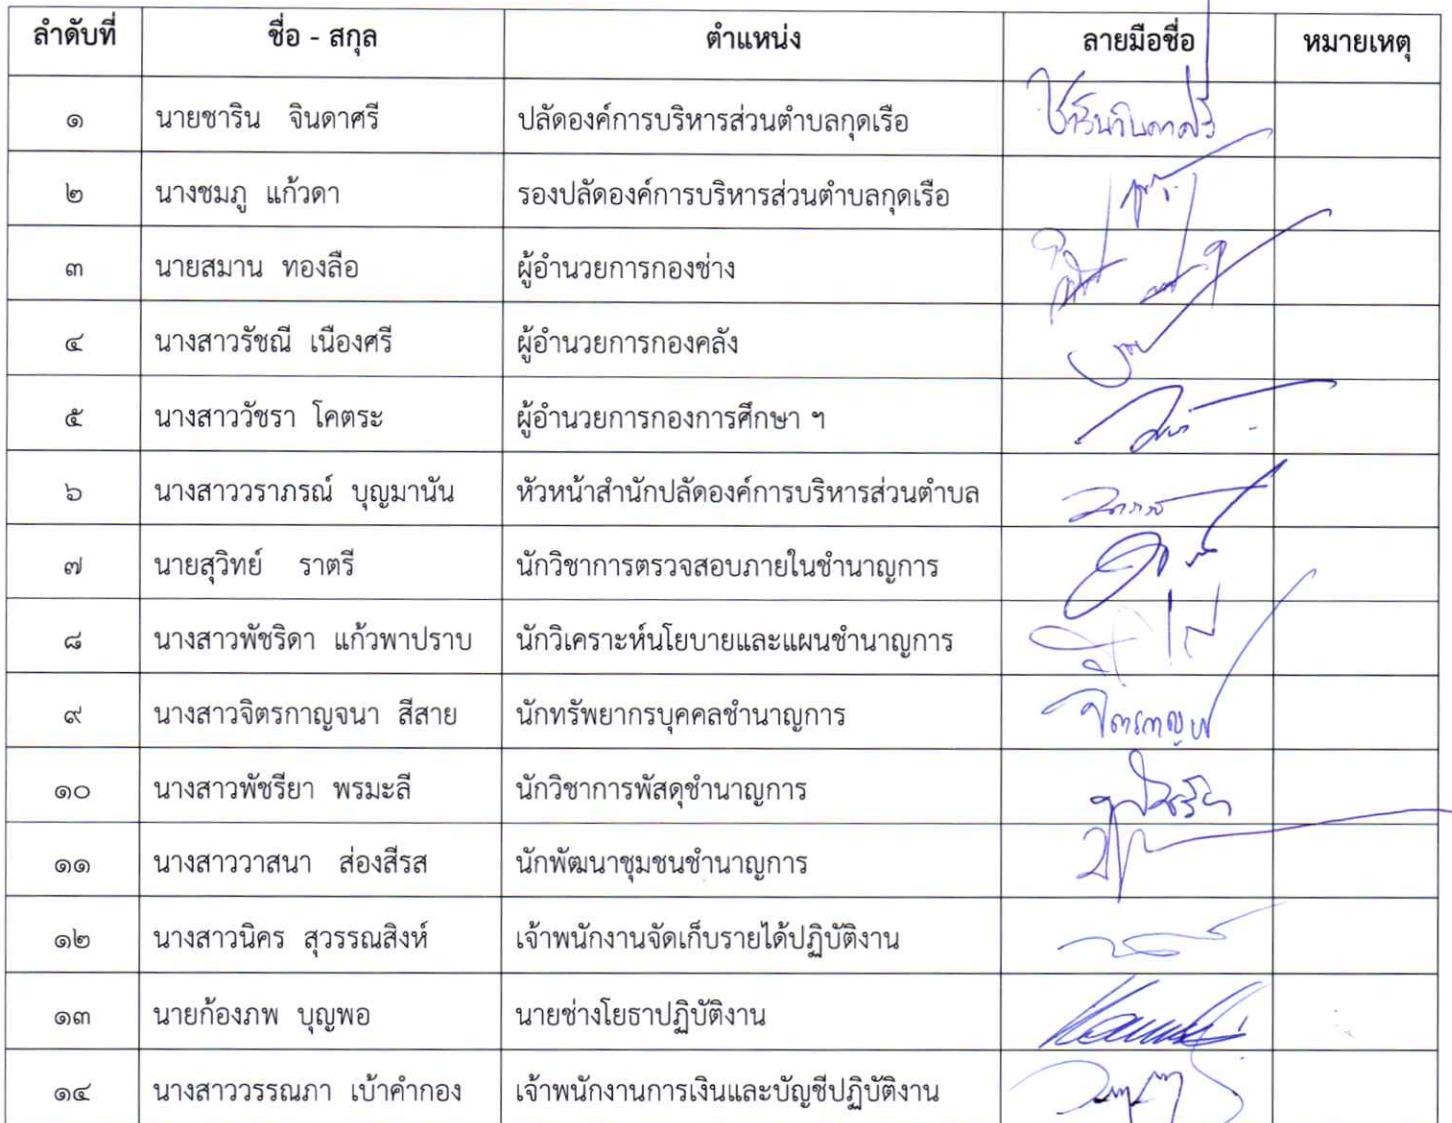 ลำดับที่ ชื่อ - สกุล ตำแหน่ง ลายมือชื่อ หมายเหตุ
๑ นายชาริน จินดาศรี ปลัดองค์การบริหารส่วนตำบลกุดเรือ
๒ นางชมภู แก้วดา รองปลัดองค์การบริหารส่วนตำบลกุดเรือ
๓ นายสมาน ทองลือ ผู้อำนวยการกองช่าง
๔ นางสาวรัชณี เนืองศรี ผู้อำนวยการกองคลัง
๕ นางสาววัชรา โคตระ ผู้อำนวยการกองการศึกษา ฯ
๖ นางสาววราภรณ์ บุญมานัน หัวหน้าสำนักปลัดองค์การบริหารส่วนตำบล
๗ นายสุวิทย์ ราตรี นักวิชาการตรวจสอบภายในชำนาญการ
๘ นางสาวพัชริดา แก้วพาปราบ นักวิเคราะห์นโยบายและแผนชำนาญการ
๙ นางสาวจิตรกาญจนา สีสาย นักทรัพยากรบุคคลชำนาญการ
๑๐ นางสาวพัชรียา พรมะลี นักวิชาการพัสดุชำนาญการ
๑๑ นางสาววาสนา ส่องสีรส นักพัฒนาชุมชนชำนาญการ
๑๒ นางสาวนิคร สุวรรณสิงห์ เจ้าพนักงานจัดเก็บรายได้ปฏิบัติงาน
๑๓ นายก้องภพ บุญพอ นายช่างโยธาปฏิบัติงาน
๑๔ นางสาววรรณภา เบ้าคำกอง เจ้าพนักงานการเงินและบัญชีปฏิบัติงาน